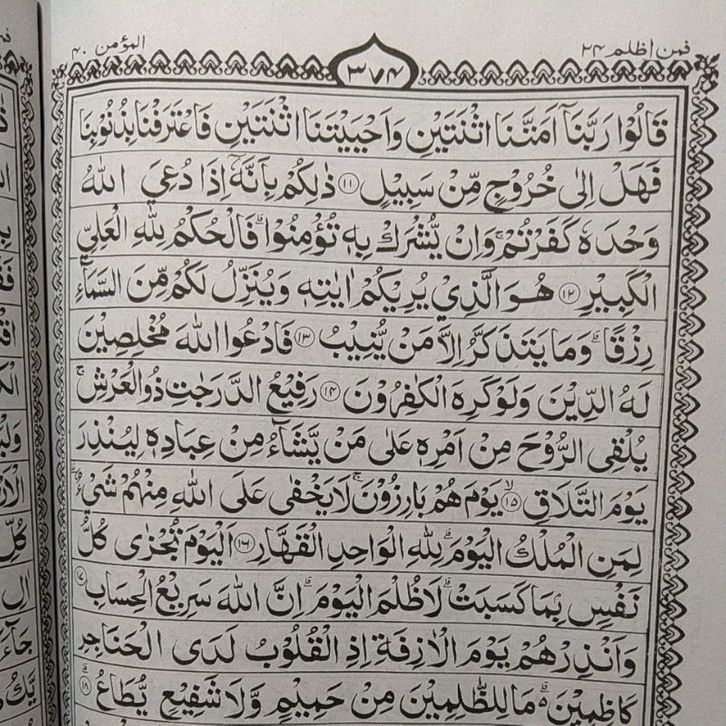 فمن اظلم ٢٤
٣٧٤
المؤمن ٤٠
قَالُوْا رَبَّنَآ اَمَتَّنَا اثْنَتَيْنِ وَاَحْيَيْتَنَا اثْنَتَيْنِ فَاعْتَرَفْنَا بِذُنُوْبِنَا
فَهَلْ اِلٰى خُرُوْجٍ مِّنْ سَبِيْلٍ ۝١١ ذٰلِكُمْ بِاَنَّهٗٓ اِذَا دُعِيَ اللّٰهُ
وَحْدَهٗ كَفَرْتُمْ ۚ وَاِنْ يُّشْرَكْ بِهٖ تُؤْمِنُوْا ۗ فَالْحُكْمُ لِلّٰهِ الْعَلِيِّ
الْكَبِيْرِ ۝١٢ هُوَ الَّذِيْ يُرِيْكُمْ اٰيٰتِهٖ وَيُنَزِّلُ لَكُمْ مِّنَ السَّمَآءِ
رِزْقًا ۗ وَمَا يَتَذَكَّرُ اِلَّا مَنْ يُّنِيْبُ ۝١٣ فَادْعُوا اللّٰهَ مُخْلِصِيْنَ
لَهُ الدِّيْنَ وَلَوْ كَرِهَ الْكٰفِرُوْنَ ۝١٤ رَفِيْعُ الدَّرَجٰتِ ذُو الْعَرْشِ ۚ
يُلْقِى الرُّوْحَ مِنْ اَمْرِهٖ عَلٰى مَنْ يَّشَآءُ مِنْ عِبَادِهٖ لِيُنْذِرَ
يَوْمَ التَّلَاقِ ۙ۝١٥ يَوْمَ هُمْ بَارِزُوْنَ ۚ لَا يَخْفٰى عَلَى اللّٰهِ مِنْهُمْ شَيْءٌ ۗ
لِمَنِ الْمُلْكُ الْيَوْمَ ۗ لِلّٰهِ الْوَاحِدِ الْقَهَّارِ ۝١٦ اَلْيَوْمَ تُجْزٰى كُلُّ
نَفْسٍۢ بِمَا كَسَبَتْ ۗ لَا ظُلْمَ الْيَوْمَ ۗ اِنَّ اللّٰهَ سَرِيْعُ الْحِسَابِ ۝١٧
وَاَنْذِرْهُمْ يَوْمَ الْاٰزِفَةِ اِذِ الْقُلُوْبُ لَدَى الْحَنَاجِرِ
كَاظِمِيْنَ ۗ مَا لِلظّٰلِمِيْنَ مِنْ حَمِيْمٍ وَّلَا شَفِيْعٍ يُّطَاعُ ۗ۝١٨